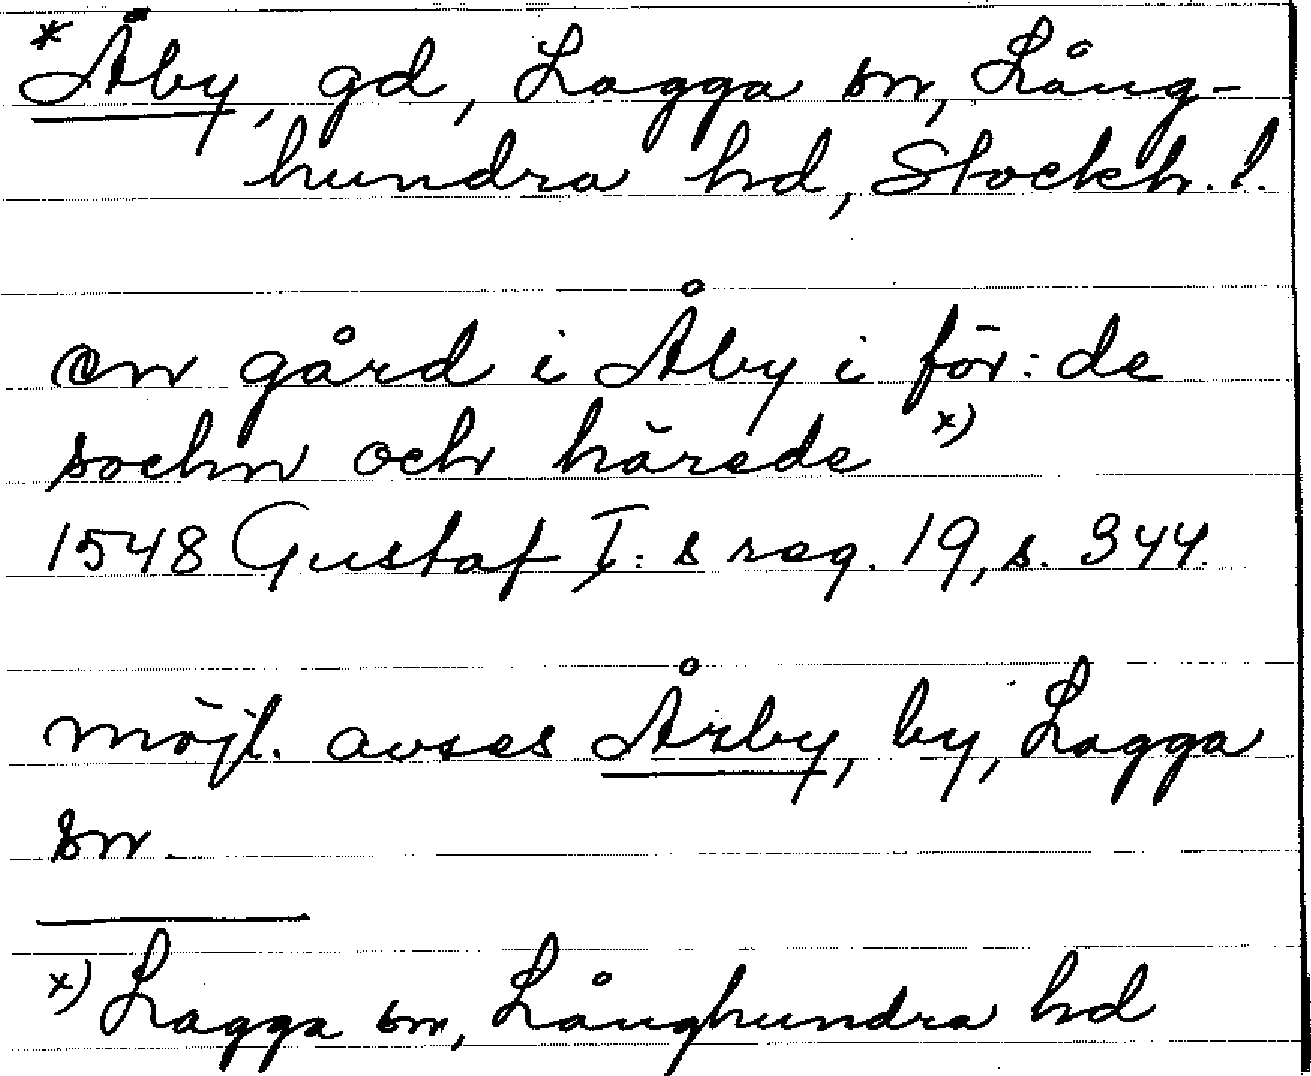 *Åby, gd, Lagga sn, Lång-
hundra hd, Stockh. l.
en gård i Åby i för:de
sochn och härede x)
1548 Gustaf I:s reg. 19, s. 344.
möjl. avses Årby, by, Lagga
sn.
x) Lagga sn, Långhundra hd